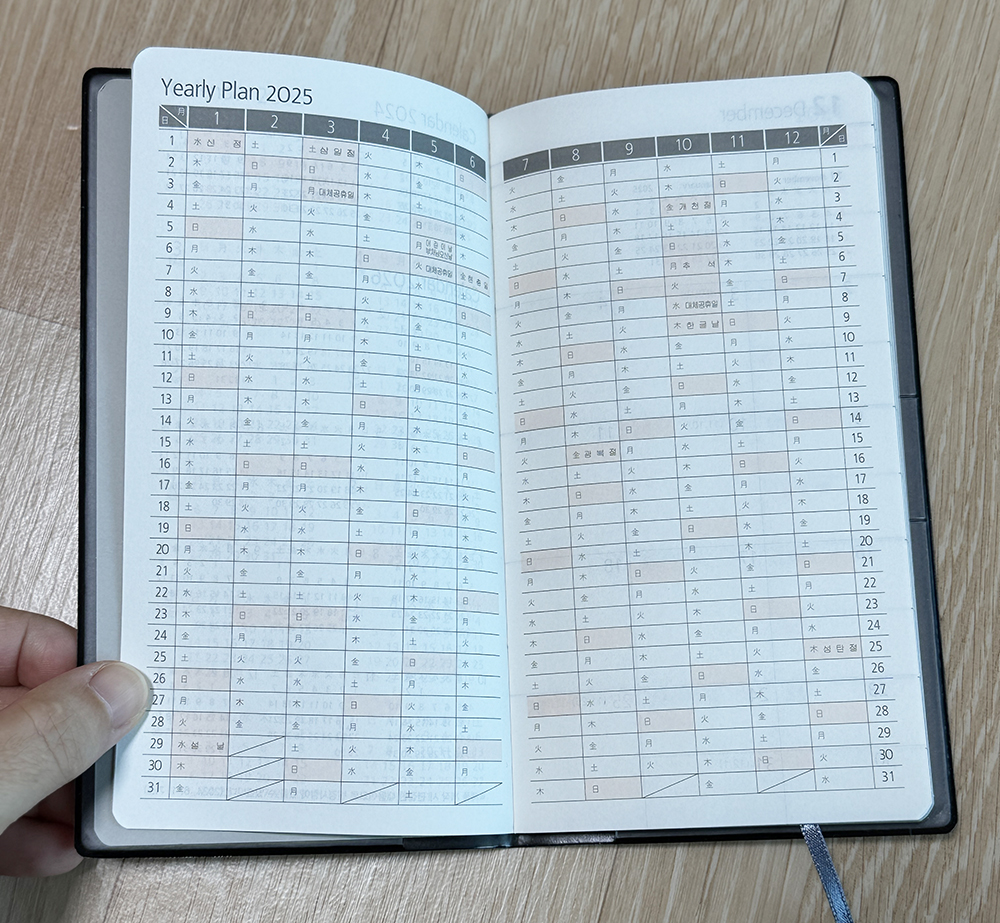 Yearly Plan 2025
月 日 1 2 3 4 5 6
1 水 신 정 土 土 삼 일 절 火 木 日
2 木 日 日 水 金 月
3 金 月 月 대체공휴일 木 土 火
4 土 火 火 金 日 水
5 日 水 水 土 月 어린이날 부처님오신날 木
6 月 木 木 日 火 대체공휴일 金 현 충 일
7 火 金 金 月 水 土
8 水 土 土 火 木 日
9 木 日 日 水 金 月
10 金 月 月 木 土 火
11 土 火 火 金 日 水
12 日 水 水 土 月 木
13 月 木 木 日 火 金
14 火 金 金 月 水 土
15 水 土 土 火 木 日
16 木 日 日 水 金 月
17 金 月 月 木 土 火
18 土 火 火 金 日 水
19 日 水 水 土 月 木
20 月 木 木 日 火 金
21 火 金 金 月 水 土
22 水 土 土 火 木 日
23 木 日 日 水 金 月
24 金 月 月 木 土 火
25 土 火 火 金 日 水
26 日 水 水 土 月 木
27 月 木 木 日 火 金
28 火 金 金 月 水 土
29 水 설 날 土 火 木 日
30 木 日 水 金 月
31 金 月 土
7 8 9 10 11 12 月 日
火 金 月 水 土 月 1
水 土 火 木 日 火 2
木 日 水 金 개 천 절 月 水 3
金 月 木 土 火 木 4
土 火 金 日 水 金 5
日 水 土 月 추 석 木 土 6
月 木 日 火 金 日 7
火 金 月 水 대체공휴일 土 月 8
水 土 火 木 한 글 날 日 火 9
木 日 水 金 月 水 10
金 月 木 土 火 木 11
土 火 金 日 水 金 12
日 水 土 月 木 土 13
月 木 日 火 金 日 14
火 金 광 복 절 月 水 土 月 15
水 土 火 木 日 火 16
木 日 水 金 月 水 17
金 月 木 土 火 木 18
土 火 金 日 水 金 19
日 水 土 月 木 土 20
月 木 日 火 金 日 21
火 金 月 水 土 月 22
水 土 火 木 日 火 23
木 日 水 金 月 水 24
金 月 木 土 火 木 성 탄 절 25
土 火 金 日 水 金 26
日 水 土 月 木 土 27
月 木 日 火 金 日 28
火 金 月 水 土 月 29
水 土 火 木 日 火 30
木 日 金 水 31